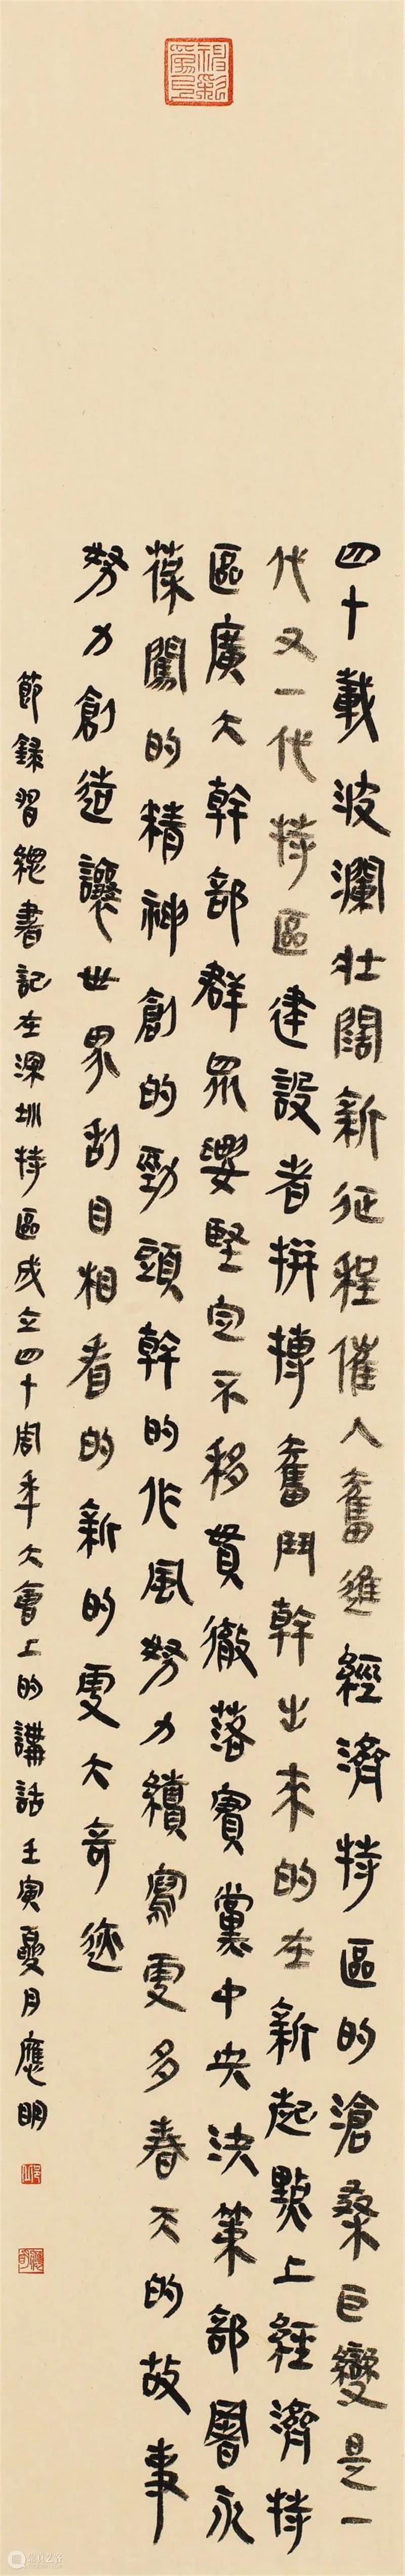 四十載波瀾壯闊新征程催人奮進經濟特區的滄桑巨變是一
代又一代特區建設者拼搏奮鬥幹出來的在新起點上經濟特
區廣大幹部群眾要堅定不移貫徹落實黨中央決策部署永
葆闖的精神創的勁頭幹的作風努力續寫更多春天的故事
努力創造讓世界刮目相看的新的更大奇跡
節録習總書記在深圳特區成立四十周年大會上的講話壬寅夏月應明